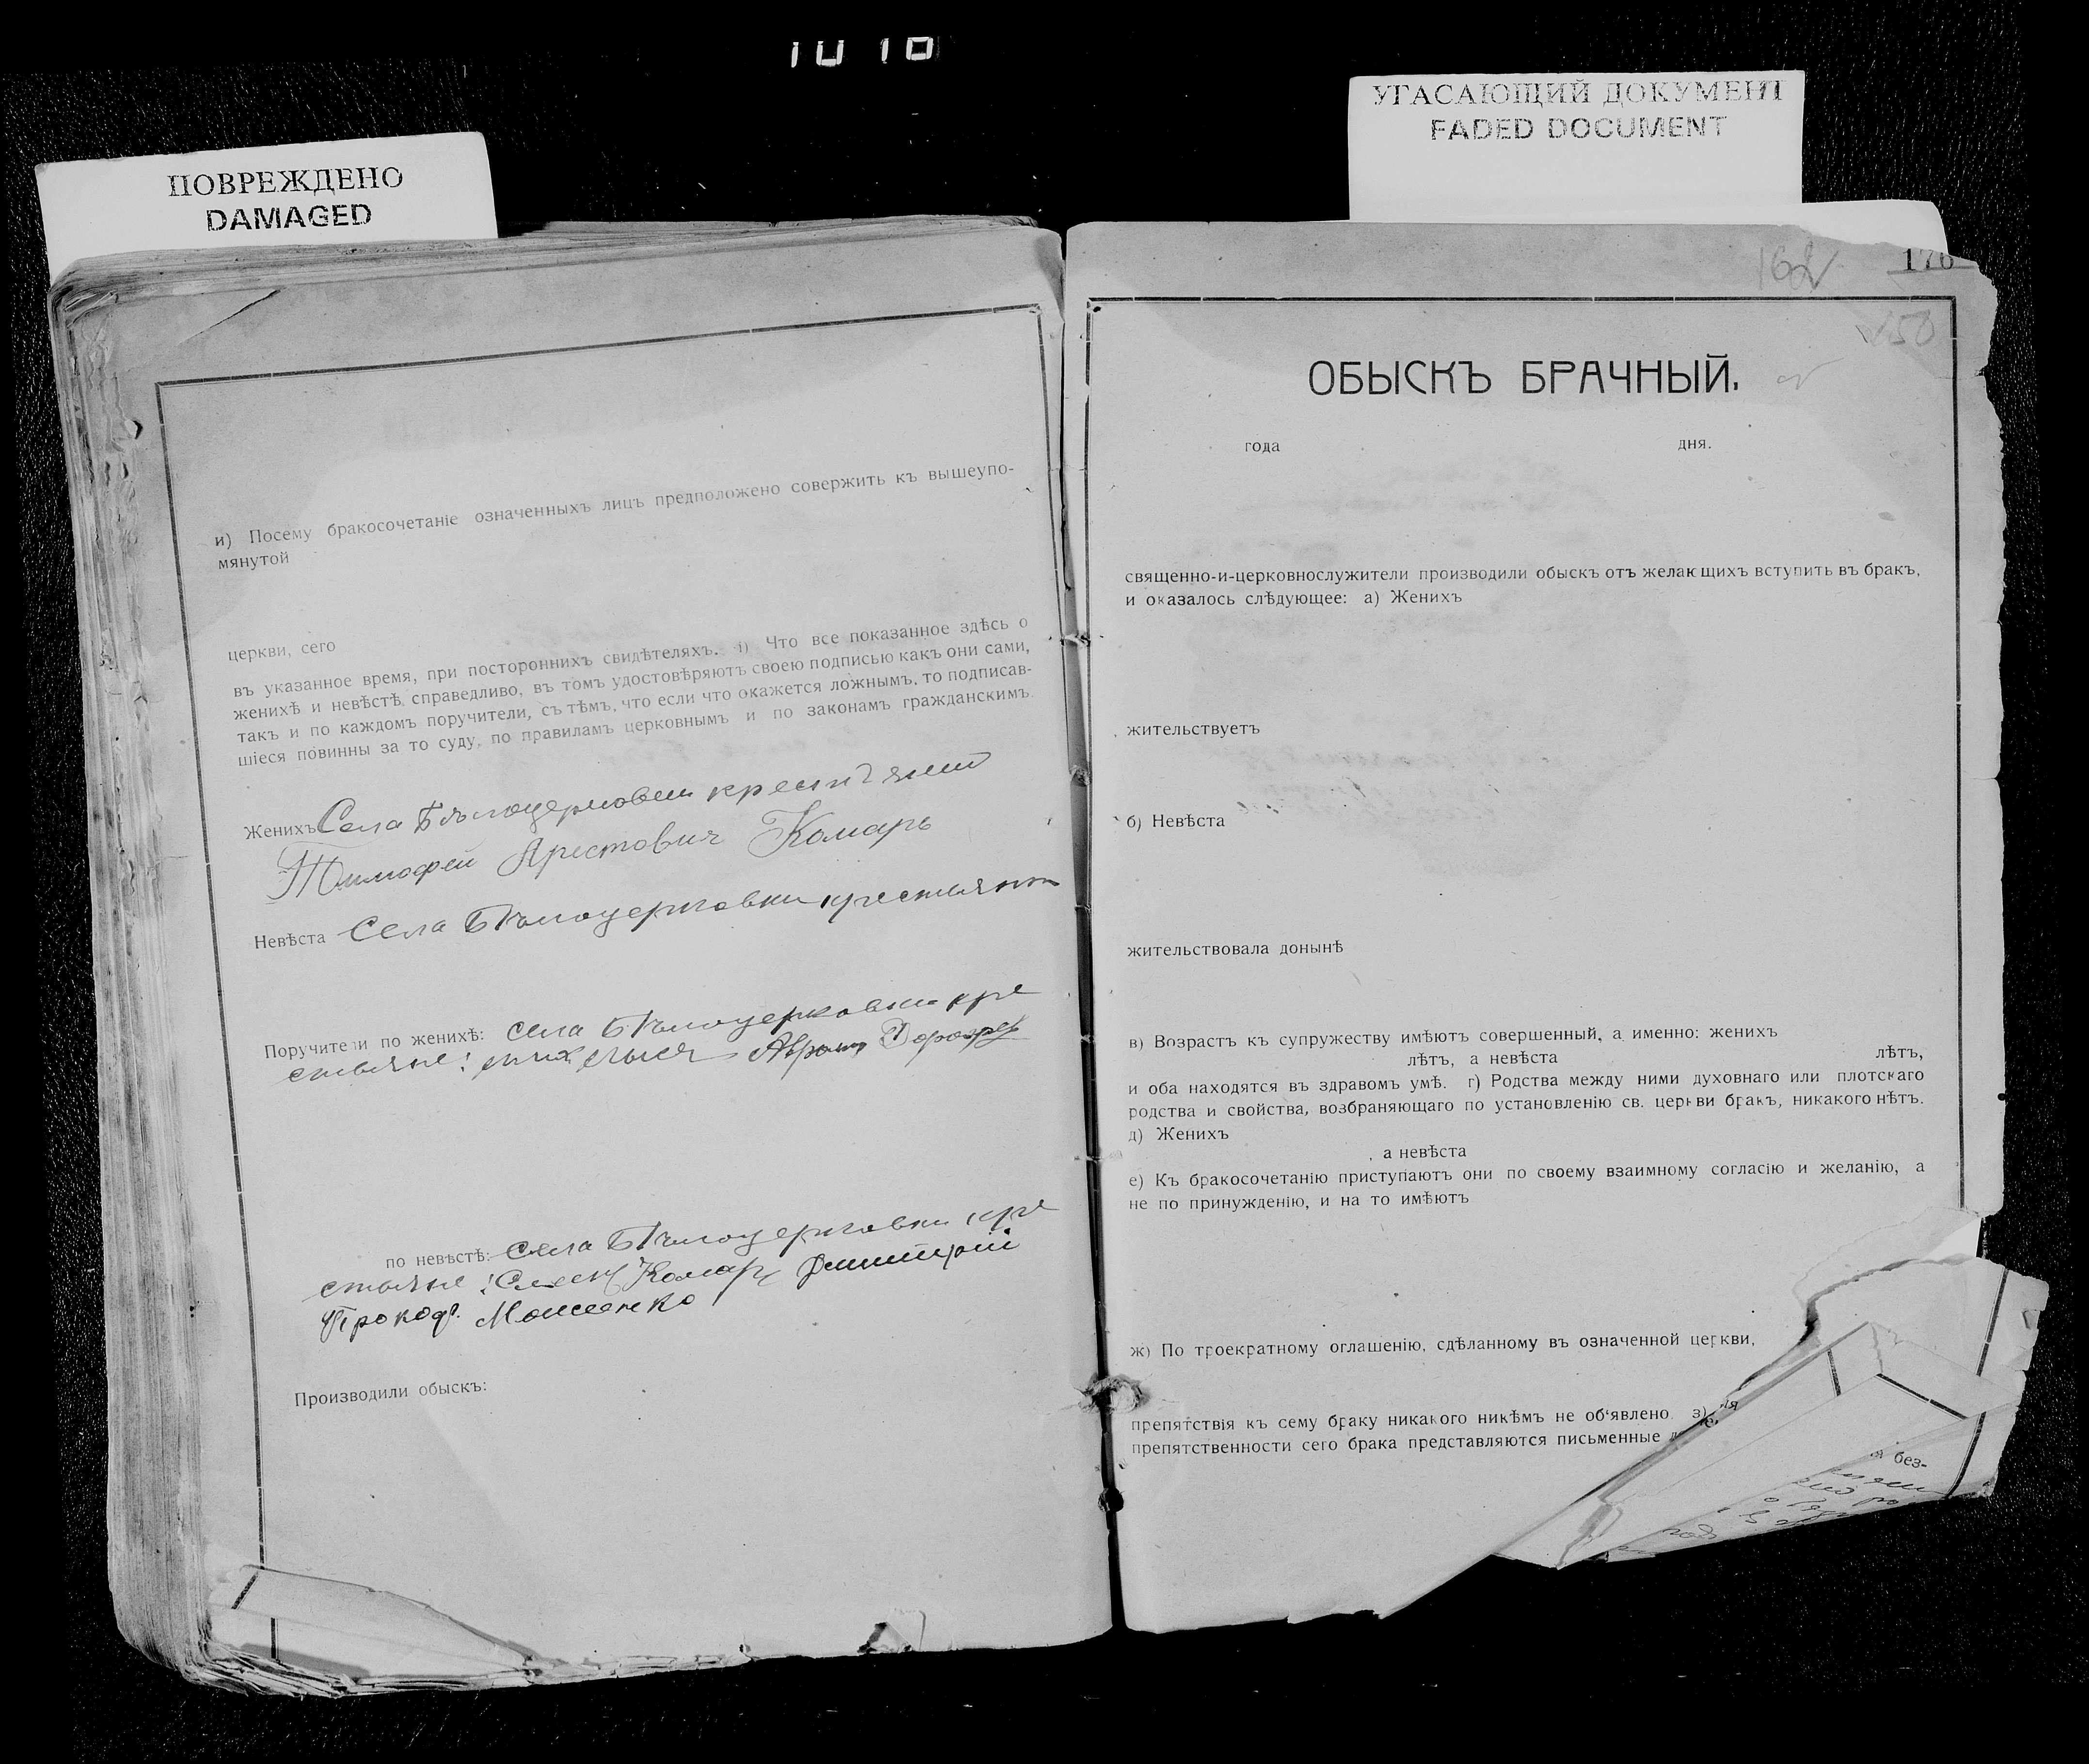 ПОВРЕЖДЕНО
DAMAGED
УГАСАЮЩИЙ ДОКУМЕНТ
FADED DOCUMENT
и) Посему бракосочетаніе означенныхъ лицъ предположено совержить къ вышеупо-
мянутой
церкви, сего
въ указанное время, при постороннихъ свидѣтеляхъ. і) Что все показанное здѣсь о
женихѣ и невѣстѣ справедливо, въ томъ удостовѣряютъ своею подписью какъ они сами,
такъ и по каждомъ поручители, съ тѣмъ, что если что окажется ложнымъ, то подписав-
шіеся повинны за то суду, по правиламъ церковнымъ и по законамъ гражданскимъ.
Женихъ Села Бѣлоцерковки
Тимофей Арестович Комарь
Невѣста Села Бѣлоцерковки
Поручители по женихѣ: села Бѣлоцерковки кре
стьяне:
по невѣстѣ: села Бѣлоцерковки кре
стьяне: Комарь Димитрій
Прокоф. Моисеенко
Производили обыскъ:
162
176
150
ОБЫСКЪ БРАЧНЫЙ.
года дня.
священно-и-церковнослужители производили обыскъ отъ желающихъ вступить въ бракъ,
и оказалось слѣдующее: а) Женихъ
жительствуетъ
б) Невѣста
жительствовала донынѣ
в) Возрастъ къ супружеству имѣютъ совершенный, а именно: женихъ
лѣтъ, а невѣста лѣтъ,
и оба находятся въ здравомъ умѣ. г) Родства между ними духовнаго или плотскаго
родства и свойства, возбраняющаго по установленію св. церкви бракъ, никакого нѣтъ.
д) Женихъ
, а невѣста
е) Къ бракосочетанію приступаютъ они по своему взаимному согласію и желанію, а
не по принужденію, и на то имѣютъ
ж) По троекратному оглашенію, сдѣланному въ означенной церкви,
препятствія къ сему браку никакого никѣмъ не об'явлено. з)
препятственности сего брака представляются письменные
без-